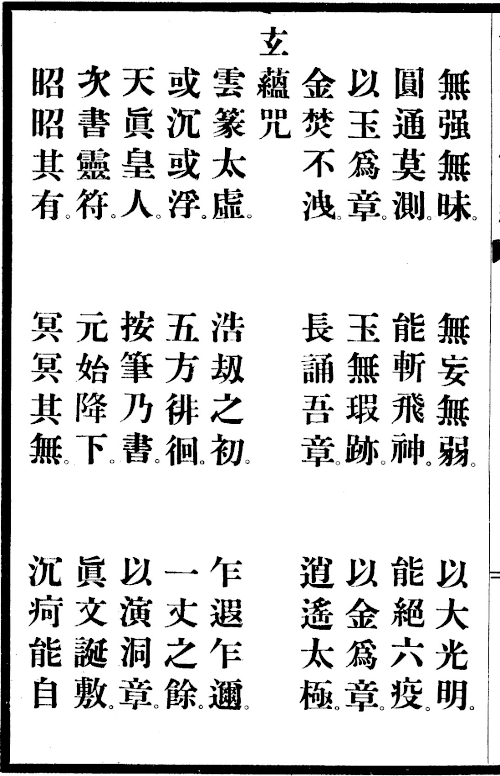 無强無昧。無妄無弱。以大光明。
圓通莫測。能斬飛神。能絕六疫。
以玉爲章。玉無瑕跡。以金爲章。
金焚不洩。長誦吾章。逍遙太極。
玄蘊咒
雲篆太虛。浩刼之初。乍遐乍邇。
或沉或浮。五方徘徊。一丈之餘。
天眞皇人。按筆乃書。以演洞章。
次書靈符。元始降下。眞文誕敷。
昭昭其有。冥冥其無。沉疴能自